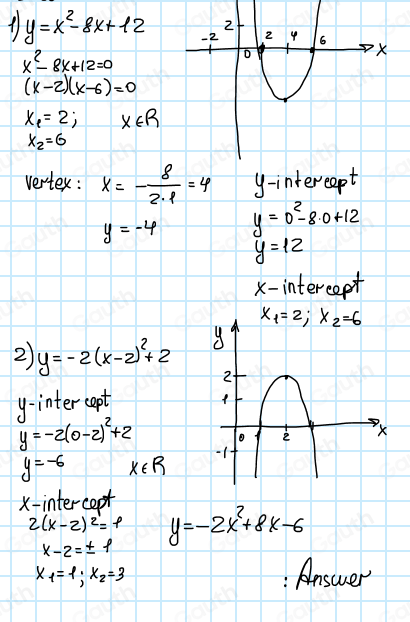 1) y = x² - 8x + 12
x² - 8x + 12 = 0
(x-2)(x-6) = 0
x₁ = 2; x ∈ R
x₂ = 6
2
-2 0 2 4 6 x
vertex: x = - 8 / 2·1 = 4
y = -4
y-intercept
y = 0² - 8·0 + 12
y = 12
x-intercept
x₁ = 2; x₂ = 6
2) y = -2(x-2)² + 2
y-intercept
y = -2(0-2)² + 2
y = -6 x ∈ R
x-intercept
2(x-2)² = 1
x-2 = ± 1
x₁ = 1; x₂ = 3
y
2
1
0 1 2 x
-1
y = -2x² + 8x - 6
: Answer